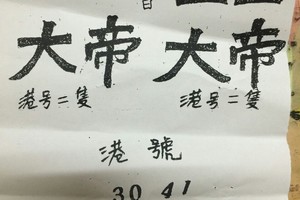 大帝 大帝
港号二隻 港号二隻
港號
30 41